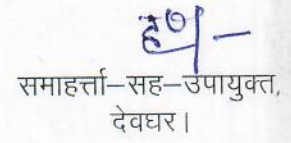 ह०/–
समाहर्त्ता–सह–उपायुक्त,
देवघर।